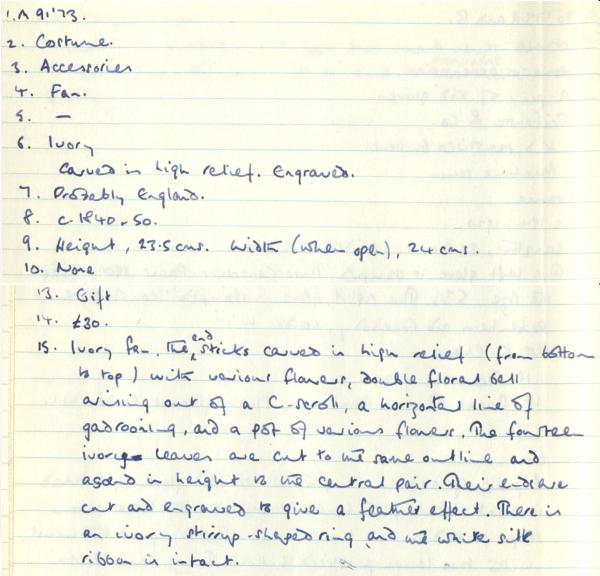 1. A 91'73.
2. Costume.
3. Accessories
4. Fan.
5. —
6. Ivory
Carved in high relief. Engraved.
7. Probably England.
8. c.1840-50.
9. Height, 23.5 cms. Width (when open), 24 cms.
10. None
13. Gift
14. £30.
15. Ivory fan. The end sticks carved in high relief (from bottom
to top) with various flowers, double floral bell
arising out of a C-scroll, a horizontal line of
gadrooning, and a pot of various flowers. The fourteen
ivory leaves are cut to the same outline and
ascend in height to the central pair. Their ends are
cut and engraved to give a feather effect. There is
an ivory stirrup-shaped ring and the white silk
ribbon is intact.